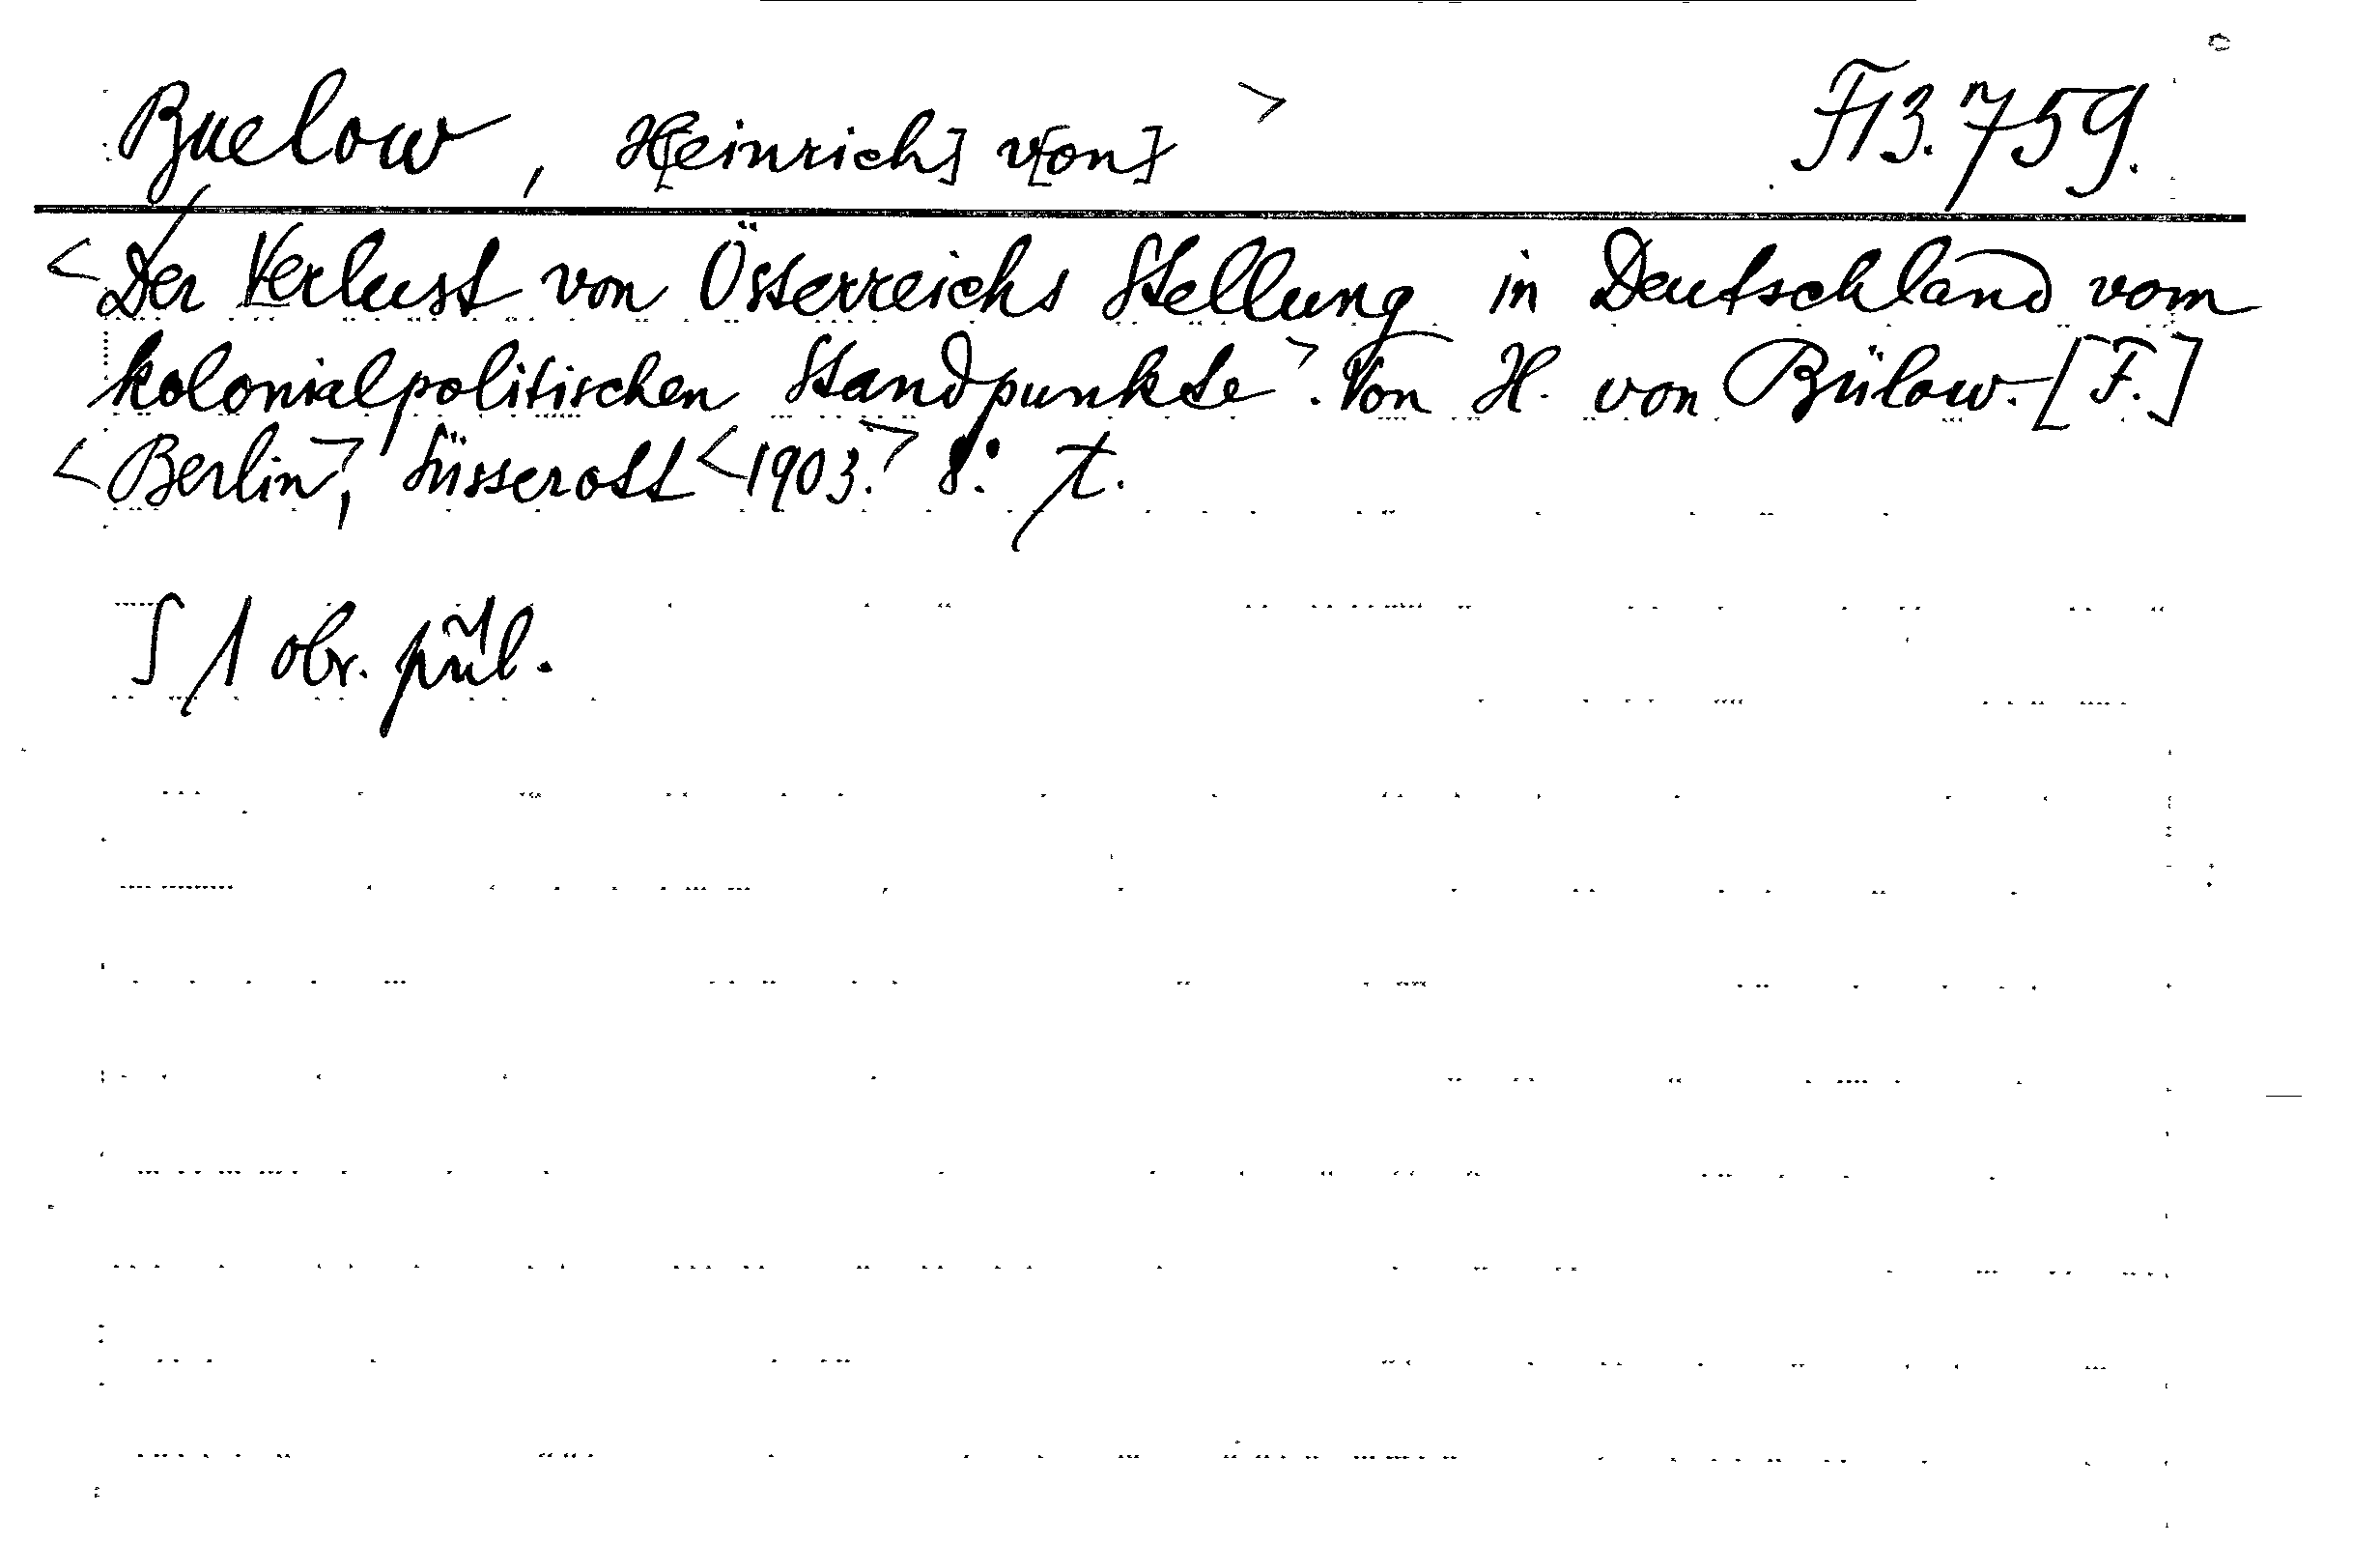 Buelow, H[einrich] v[on] > F13.759.
<Der Verlust von Österreichs Stellung in Deutschland vom
kolonialpolitischen Standpunkte>. Von H. von Bülow. [F.]
<Berlin>, Süsserott <1903.> 8.° t.
S 1 obr. příl.